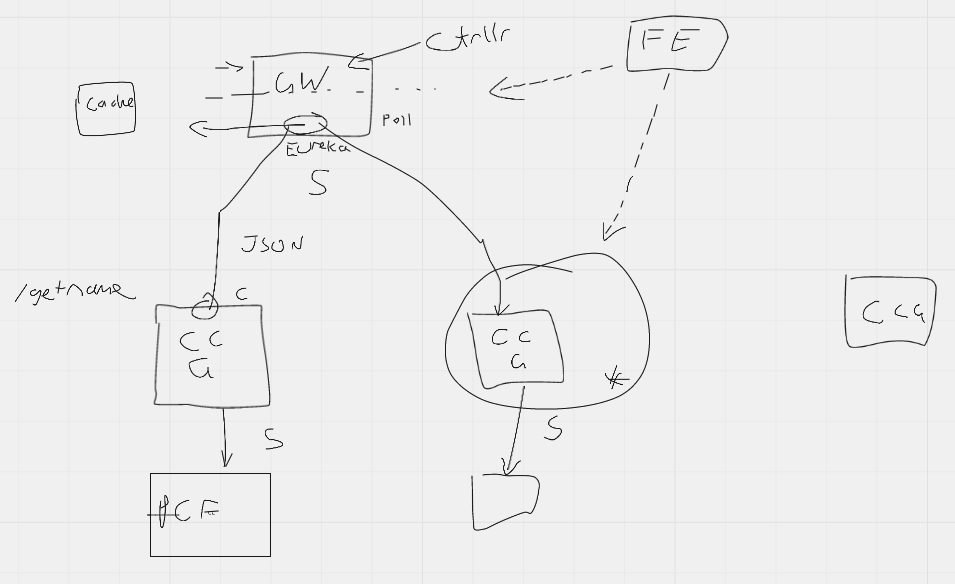 Ctrllr
FE
GW
Cache
Poll
Eureka
S
JSON
/getname
C
CC
G
CC
G
CCG
S
S
PCF